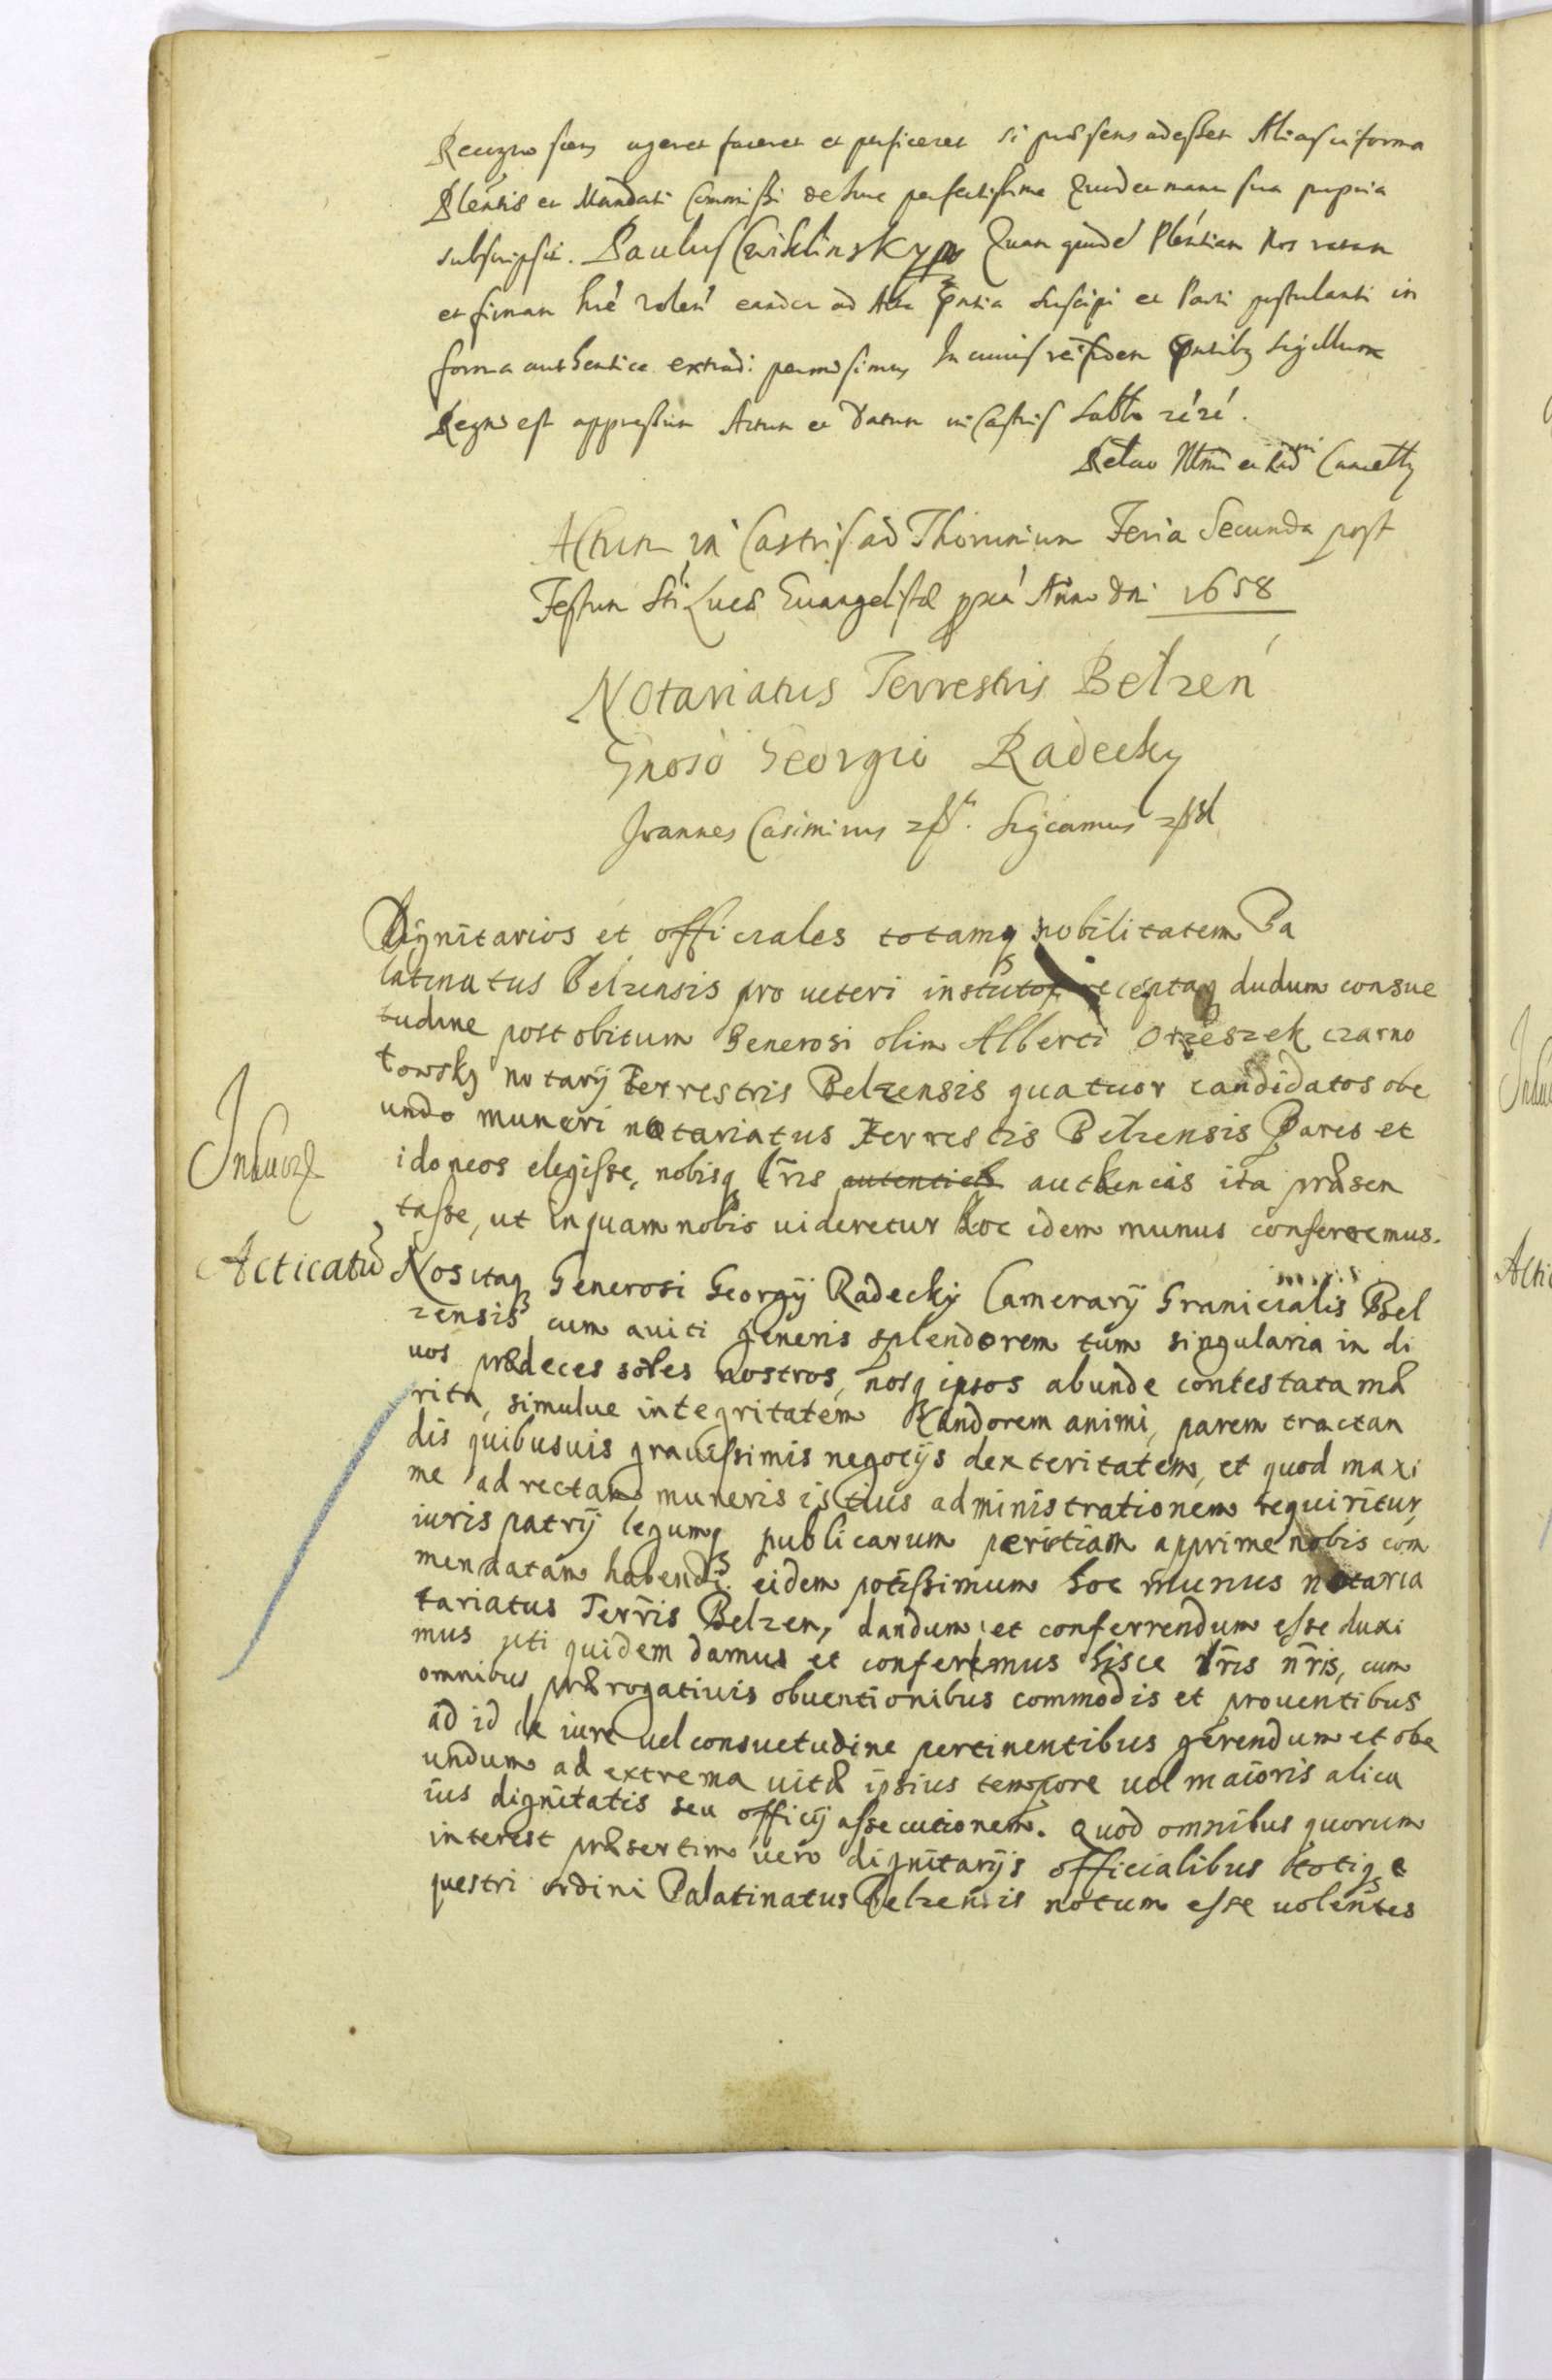 Recogno scens ageret faceret et perficeret si præsens adesset Alias in forma
Plentis et Mandati Commissi de Jure perfectissime Quod et manu sua propria
subscripsit. Paulus Cwiklinsky mp Quam quidē Plentiam Nos ratam
et firmam hrē volen eandem ad Acta pntia suscipi et Parti postulanti in
forma authentica extradi permisimus In cuius rei fidem pntibq Sigillum
Regni est appressum Actum et Datum in Castris Sabbo
Actum in Castris ad Thorunium Feria Secunda post
Festum Sti Lucæ Euangelistæ pxa Anno Dni 1658
Notariatus Terrestris Belzen
Gnoso Georgio Radecky
Joannes Casimirus Sigcamus
Dignitarios et officiales totamq nobilitatem Pa
latinatus Belzensis pro ueteri instituto receptaq dudum consue
tudine post obitum Generosi olim Alberti Orzeszek czarno
towsky notarij terrestris Belzensis quatuor candidatos obe
undo muneri notariatus terrestis Belzensis Pares et
idoneos elegisse, nobisq lris autenticis autkencis ita præsen
tasse, ut in quam nobis uideretur hoc idem munus conferremus.
Acticatū Nos itaq Generosi Georgij Radecky Camerarij Granicialis Bel
zensis cum auiti generis splendorem tum singularia in di
uos prædecessores nostros, nosq ipsos abunde contestata mæ
rita, simulue integritatem Kandorem animi, parem tractan
dis quibusuis grauissimis negotijs dexteritatem, et quod maxi
me ad rectam muneris istius administrationem requiritur,
iuris patrij legumq publicarum peritiam apprime nobis com
mendatam habendi eidem potissimum hoc munus notaria
tariatus Terris Belzen, dandum et conferrendum esse duxi
mus uti quidem damus et conferimus hisce lris nris, cum
omnibus prærogatiuis obuentionibus commodis et prouentibus
ad id de iure uel consuetudine pertinentibus gerendum et obe
undum ad extrema uitæ ipsius tempore uel maioris alicu
ius dignitatis seu officij assecutionem. Quod omnibus quorum
interest præsertim uero dignitarijs officialibus totiq e
questri ordini Palatinatus Belzensis notum esse uolentes